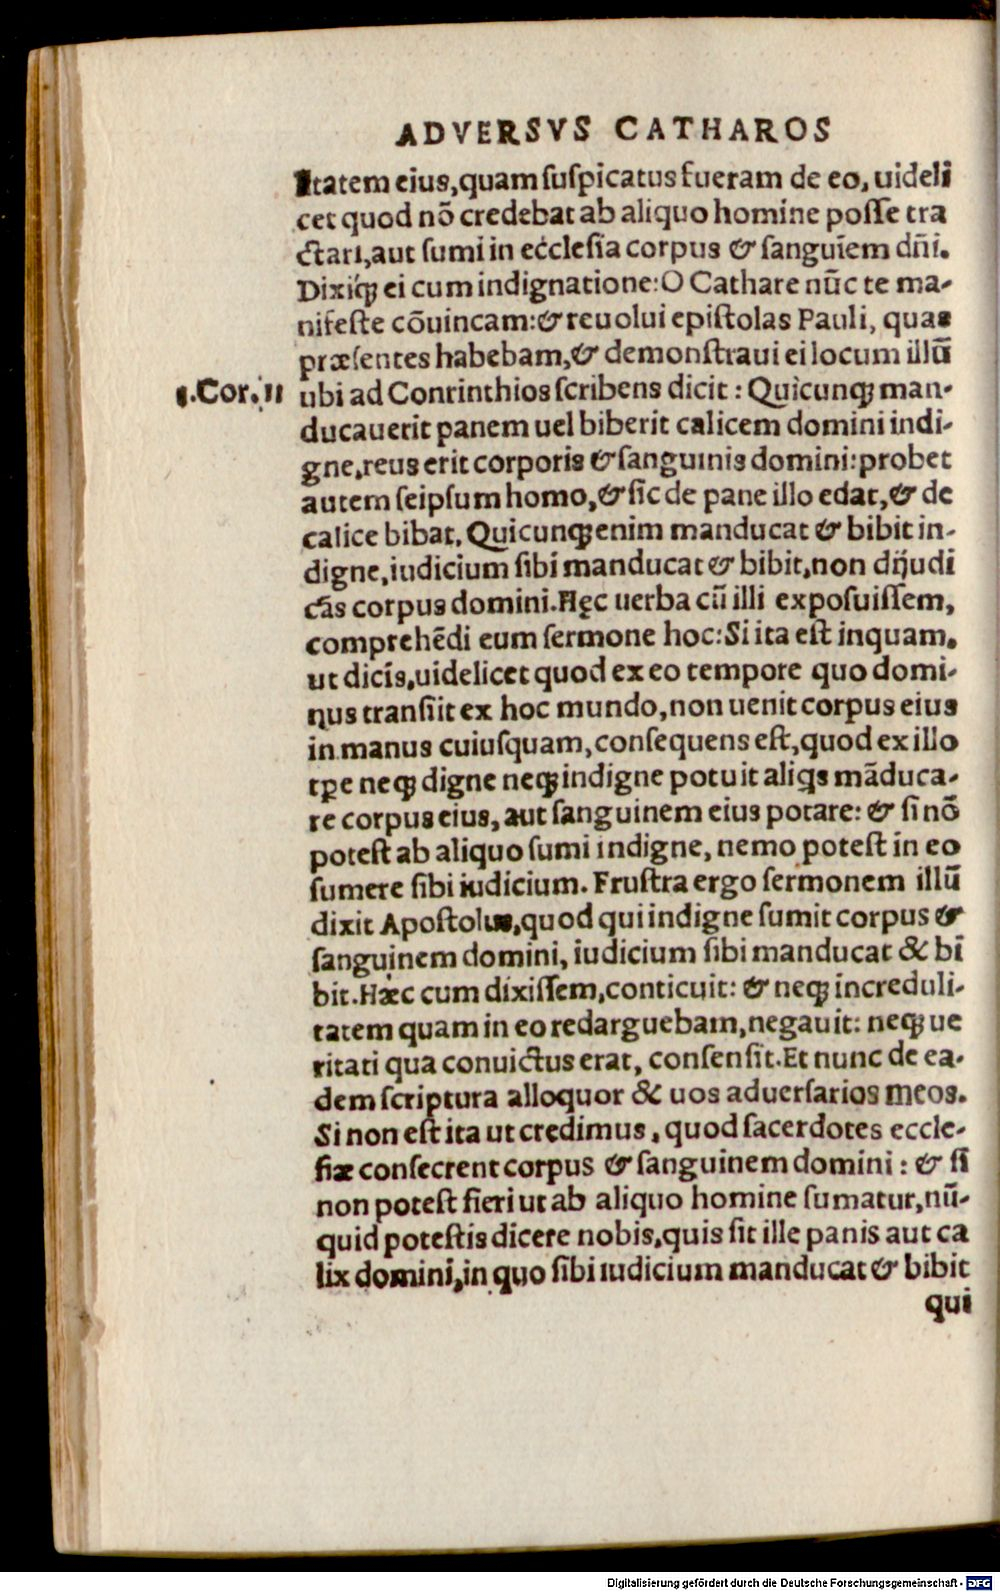 ADVERSVS CATHAROS
ltatem eius, quam suspicatus fueram de eo, uideli
cet quod nō credebat ab aliquo homine posse tra
ctari, aut sumi in ecclesia corpus & sanguīem dn̄i.
Dixiq́ꝫ ei cum indignatione: O Cathare nūc te ma-
nifeste cōuincam: & reuolui epistolas Pauli, quas
præsentes habebam, & demonstraui ei locum illū
1.Cor.11
ubi ad Conrinthios scribens dicit: Quicunqꝫ man-
ducauerit panem uel biberit calicem domini indi-
gne, reus erit corporis & sanguinis domini: probet
autem seipsum homo, & sic de pane illo edat, & de
calice bibat. Quicunqꝫ enim manducat & bibit in-
digne, iudicium sibi manducat & bibit, non dijudi
cās corpus domini. Hęc uerba cū illi exposuissem,
comprehēdi eum sermone hoc: Si ita est inquam,
ut dicis, uidelicet quod ex eo tempore quo domi-
nus transiit ex hoc mundo, non uenit corpus eius
in manus cuiusquam, consequens est, quod ex illo
tꝑe neqꝫ digne neqꝫ indigne potuit aliqs māduca-
re corpus eius, aut sanguinem eius potare: & si nō
potest ab aliquo sumi indigne, nemo potest in eo
sumere sibi iudicium. Frustra ergo sermonem illū
dixit Apostolus, quod qui indigne sumit corpus &
sanguinem domini, iudicium sibi manducat & bi
bit. Hæc cum dixissem, conticuit: & neqꝫ increduli-
tatem quam in eo redarguebam, negauit: neqꝫ ue
ritati qua conuictus erat, consensit. Et nunc de ea-
dem scriptura alloquor & uos aduersarios meos.
Si non est ita ut credimus, quod sacerdotes eccle-
siæ consecrent corpus & sanguinem domini: & si
non potest fieri ut ab aliquo homine sumatur, nū-
quid potestis dicere nobis, quis sit ille panis aut ca
lix domini, in quo sibi iudicium manducat & bibit
qui
Digitalisierung gefördert durch die Deutsche Forschungsgemeinschaft - DFG